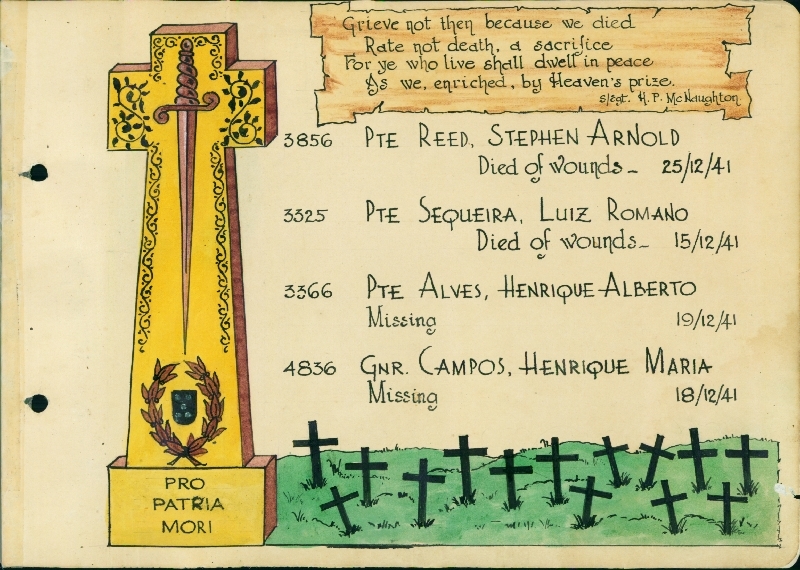 Grieve not then because we died
Rate not death, a sacrifice
For ye who live shall dwell in peace
As we, enriched, by Heaven's prize.
s/sgt. H. P. McNaughton
3856 PTE REED, STEPHEN ARNOLD
Died of wounds - 25/12/41
3325 PTE SEQUEIRA, LUIZ ROMANO
Died of wounds - 15/12/41
3366 PTE ALVES, HENRIQUE ALBERTO
Missing 19/12/41
4836 GNR. CAMPOS, HENRIQUE MARIA
Missing 18/12/41
PRO
PATRIA
MORI